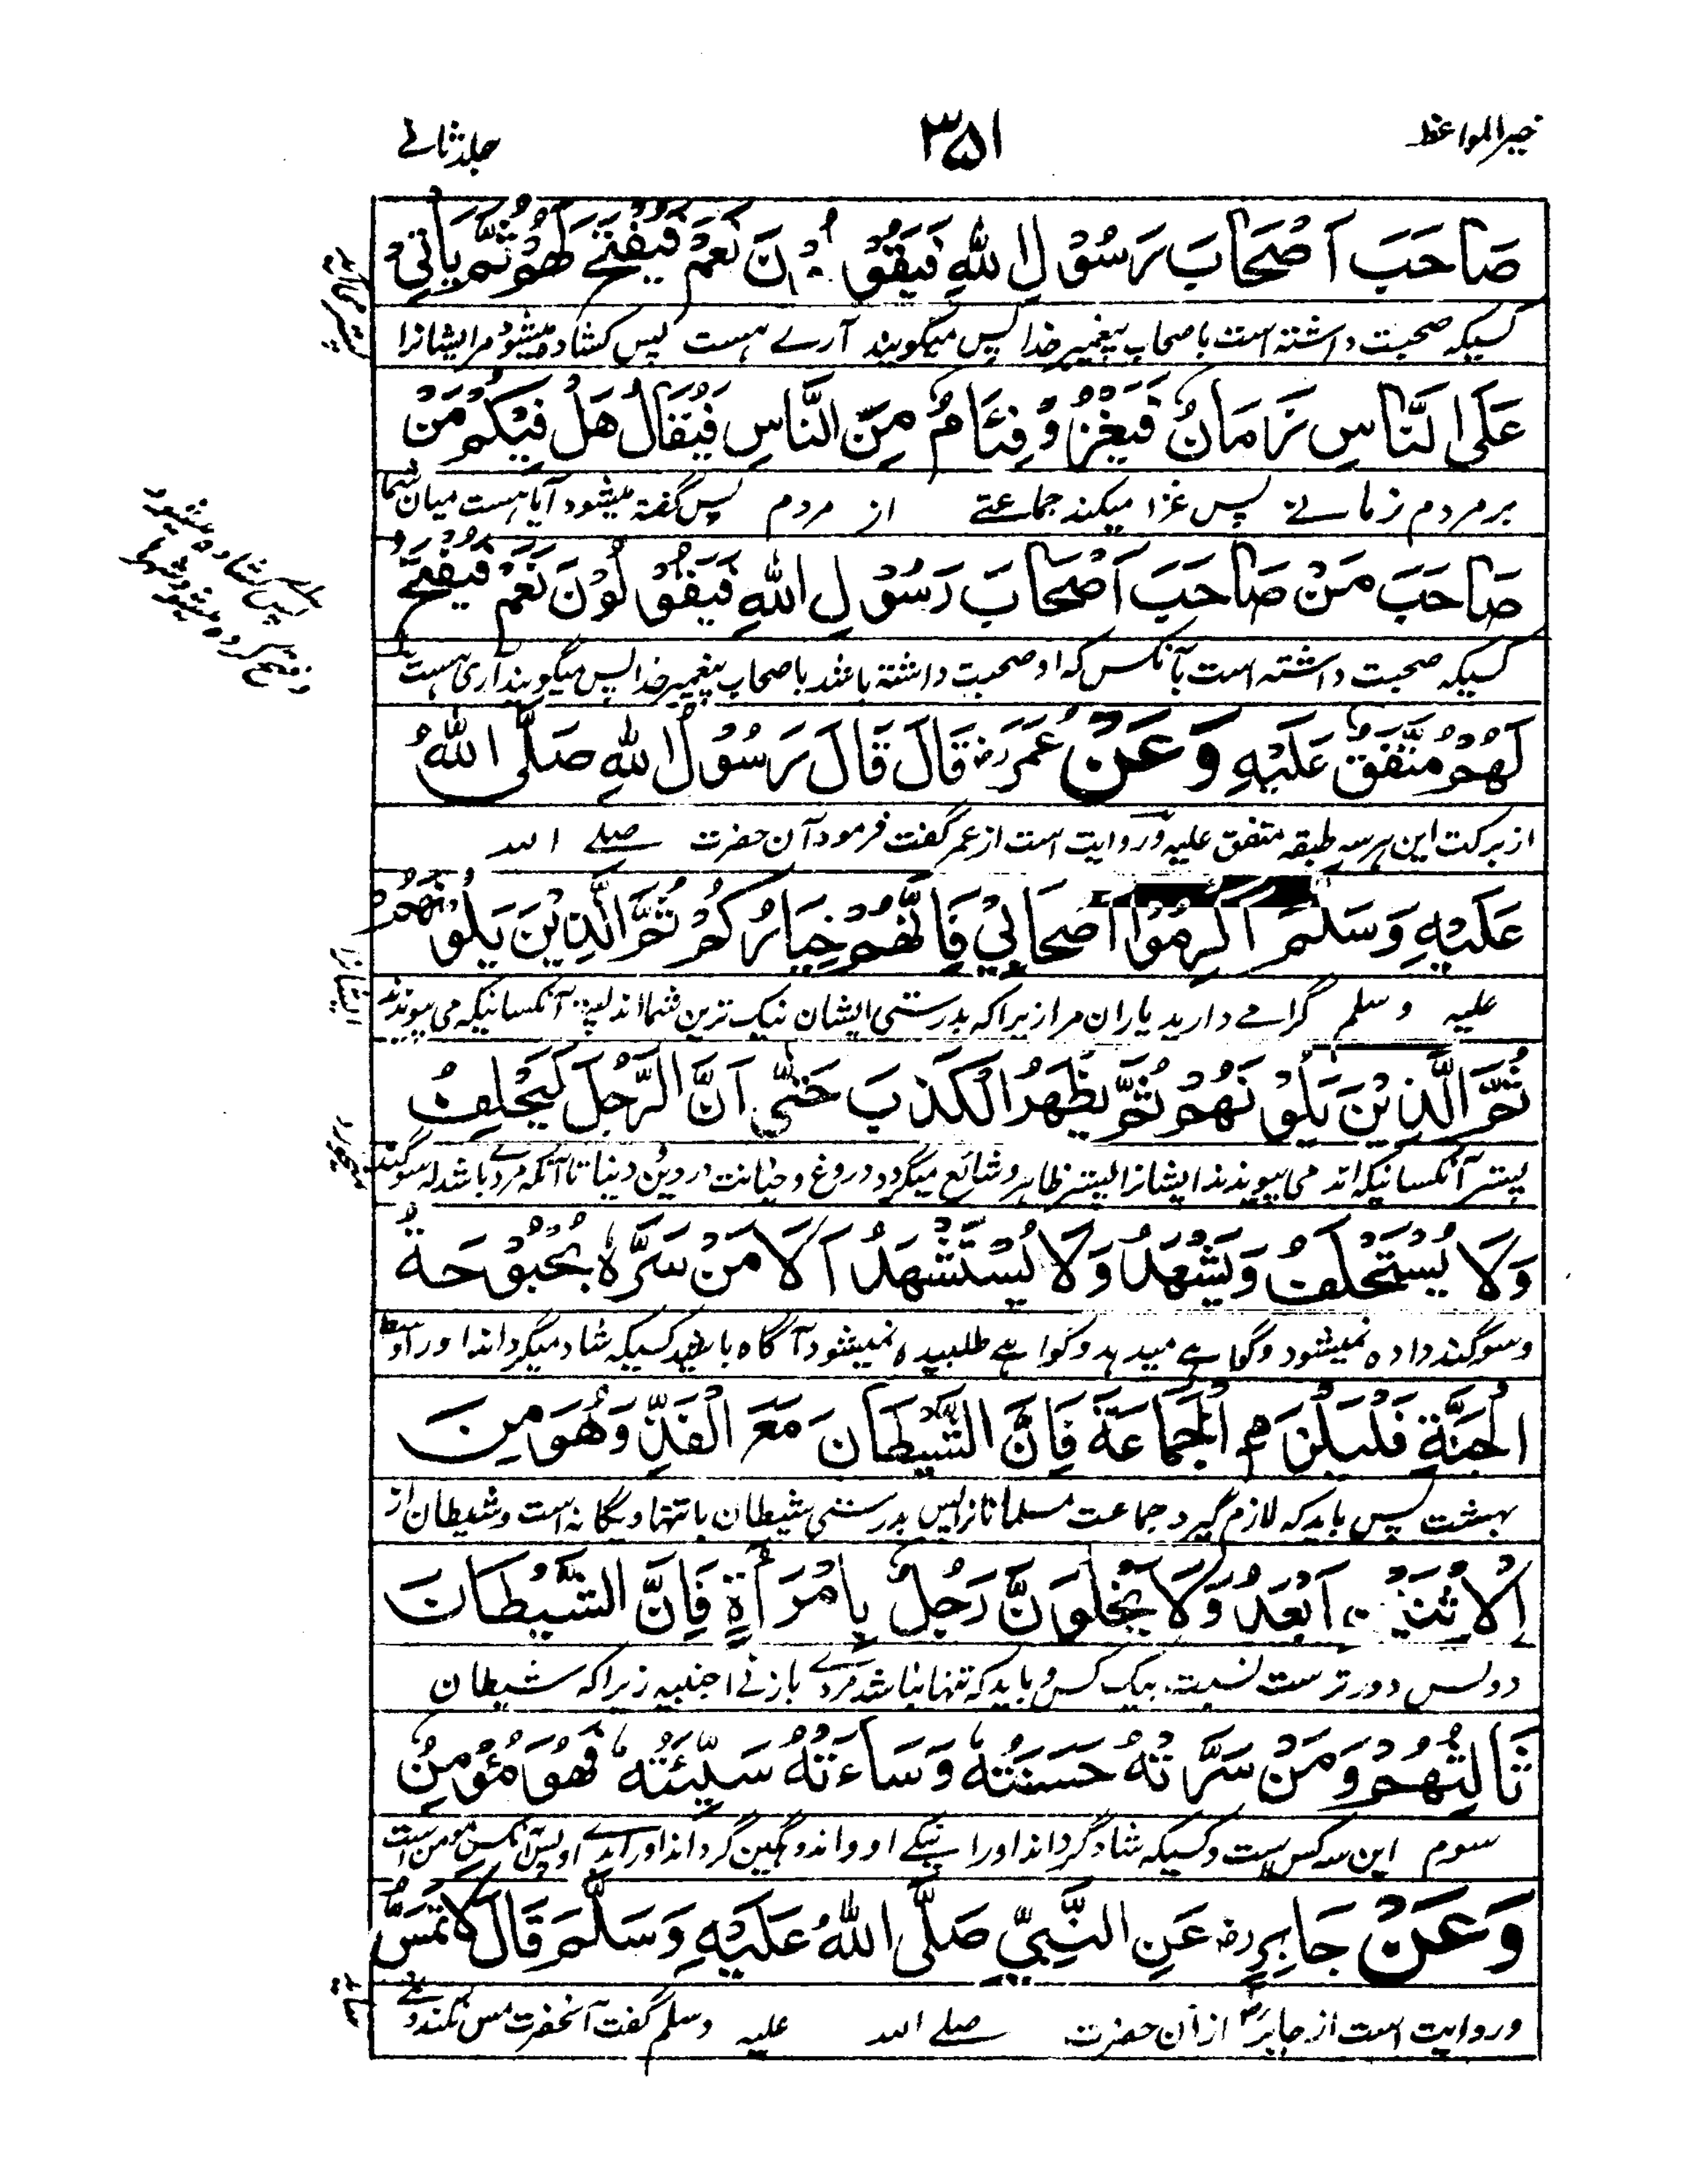 خیر المواعظ
۳۵۱
جلد ثانے
صَاحَبَ اَصْحَابَ رَسُوْلِ اللّٰهِ فَیَقُوْلُوْنَ نَعَمْ فَیُفْتَحُ لَهُمْ ثُمَّ یَاْتِیْ
کسیکه صحبت داشته است باصحاب پیغمبر خدا پس میگویند آرے هست پس کشاده میشود مر ایشانرا
عَلَی النَّاسِ زَمَانٌ فَیَغْزُوْ فِئَامٌ مِنَ النَّاسِ فَیُقَالُ هَلْ فِیْکُمْ مَنْ
بر مردم زمانے پس غزا میکند جماعتے از مردم پس گفته میشود آیا هست میان شما
صَاحَبَ مَنْ صَاحَبَ اَصْحَابَ رَسُوْلِ اللّٰهِ فَیَقُوْلُوْنَ نَعَمْ فَیُفْتَحُ
کسیکه صحبت داشته است بآنکس که او صحبت داشته باشد باصحاب پیغمبر خدا پس میگویند آری هست
پس کشاده میشود
و فتح کرده میشود شهر
لَهُمْ مُتَّفَقٌ عَلَیْهِ وَعَنْ عُمَرَ رض قَالَ قَالَ رَسُوْلُ اللّٰهِ صَلَّی اللّٰهُ
از برکت این هر سه طبقه متفق علیه و روایت است از عمر گفت فرمود آن حضرت صلے الله
عَلَیْهِ وَسَلَّمَ اَکْرِمُوْا اَصْحَابِیْ فَاِنَّهُمْ خِیَارُکُمْ ثُمَّ الَّذِیْنَ یَلُوْنَهُمْ
علیه وسلم گرامے دارید یاران مرا زیراکه بدرستی ایشان نیک ترین شما اند پستر آنکسانیکه می پیوندند
ایشانرا
ثُمَّ الَّذِیْنَ یَلُوْنَهُمْ ثُمَّ یَظْهَرُ الْکَذِبَ حَتّٰی اَنَّ الرَّجُلَ لَیَحْلِفُ
پستر آنکسانیکه اند می پیوندند ایشانرا پستر ظاهر و شائع میگردد دروغ و خیانت در دین و دنیا تا آنکه مردے باشد که سوگند
میخورد
وَلَا یُسْتَحْلَفُ وَیَشْهَدُ وَلَا یُسْتَشْهَدُ اَلَا مَنْ سَرَّهٗ بُحْبُوْحَةُ
و سوگند داده نمیشود و گواهے میدهد و گواهے طلبیده نمیشود آگاه باشید کسیکه شاد میگرداند اورا وسط
الْجَنَّةِ فَلْیَلْزَمِ الْجَمَاعَةَ فَاِنَّ الشَّیْطَانَ مَعَ الْفَذِّ وَهُوَ مِنَ
بهشت پس باید که لازم گیرد جماعت مسلمانانرا پس بدرستی شیطان با تنها و یگانه است و شیطان از
الْاِثْنَیْنِ اَبْعَدُ وَلَا یَخْلُوَنَّ رَجُلٌ بِامْرَأَةٍ فَاِنَّ الشَّیْطَانَ
دو کس دور ترست نسبت بیک کس و باید که تنها نباشد مردے بازنے اجنبیه زیراکه شیطان
ثَالِثُهُمْ وَمَنْ سَرَّتْهُ حَسَنَتُهٗ وَسَاءَتْهُ سَیِّئَتُهٗ فَهُوَ مُؤْمِنٌ
سوم این سه کس ست و کسیکه شاد گرداند اورا نیکے او و اندوهگین گرداند اورا بدے او پس آنکس مومن است
وَعَنْ جَابِرٍ رض عَنِ النَّبِیِّ صَلَّی اللّٰهُ عَلَیْهِ وَسَلَّمَ قَالَ لَا تَمَسُّ
و روایت است از جابر رض از آن حضرت صلے الله علیه وسلم گفت آنحضرت مس نکند و نے